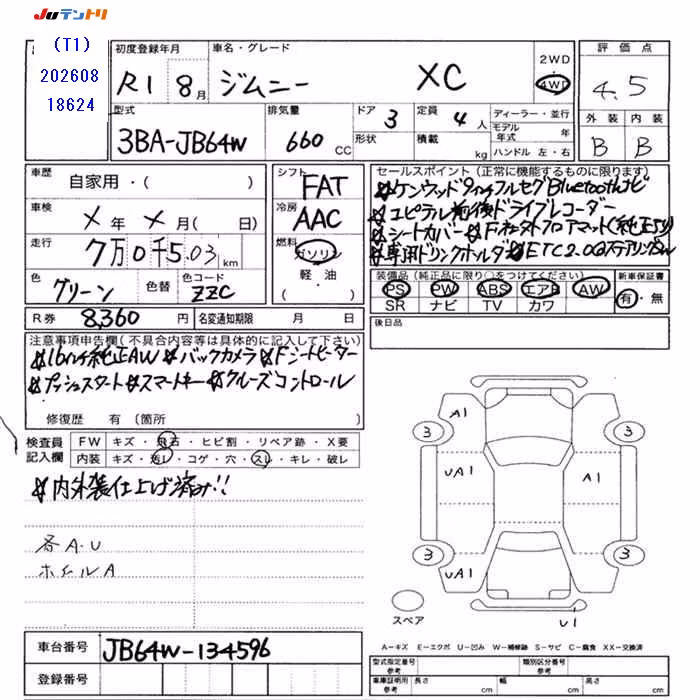 JUテントリ
(T1)
202608
18624
初度登録年月 車名・グレード 2WD 評価点
R1 8月 ジムニー XC 4WD 4.5
型式 排気量 ドア 3 定員 4人 ディーラー・並行 外装 内装
モデル年式 年
3BA-JB64W 660 CC 形状 積載 kg ハンドル 左・右 B B
車歴 自家用・( ) シフト FAT
セールスポイント(正常に機能するものに限ります)
☆ケンウッド9インチフルセグBluetoothナビ
車検 メ年 メ月( 日) 冷房 AAC
☆ユピテル前後ドライブレコーダー
☆シートカバー ☆F社外フロアマット(純正付)
走行 7万0千503km 燃料 ガソリン
軽油
( )
☆専用ドリンクホルダー ☆ETC2.0 ステアリングSW
色 グリーン 色替 色コード ZZC
装備品(純正品に限り○をつけてください) 新車保証書
PS PW ABS エアB AW 有・無
SR ナビ TV カワ
R券 8,360円 名変通知期限 月 日
後日品
注意事項申告欄(不具合内容等は具体的に記入して下さい)
☆16インチ純正AW ☆バックカメラ ☆Fシートヒーター
☆プッシュスタート ☆スマートキー ☆クルーズコントロール
修復歴 有(箇所 )
検査員記入欄 FW キズ・飛石・ヒビ割・リペア跡・X要
内装 キズ・汚レ・コゲ・穴・スレ・キレ・破レ
☆内外装仕上げ済み!!
各A・U
ホイールA
A1
3 3
UA1 A1
3 3
UA1
スペア
U1
A-キズ E-エクボ U-凹み W-補修跡 S-サビ C-腐食 XX-交換済
車台番号 JB64W-134596
登録番号
型式指定番号 参考 類別区分番号 参考
車庫証明 参考 長さ cm 幅 cm 高さ cm